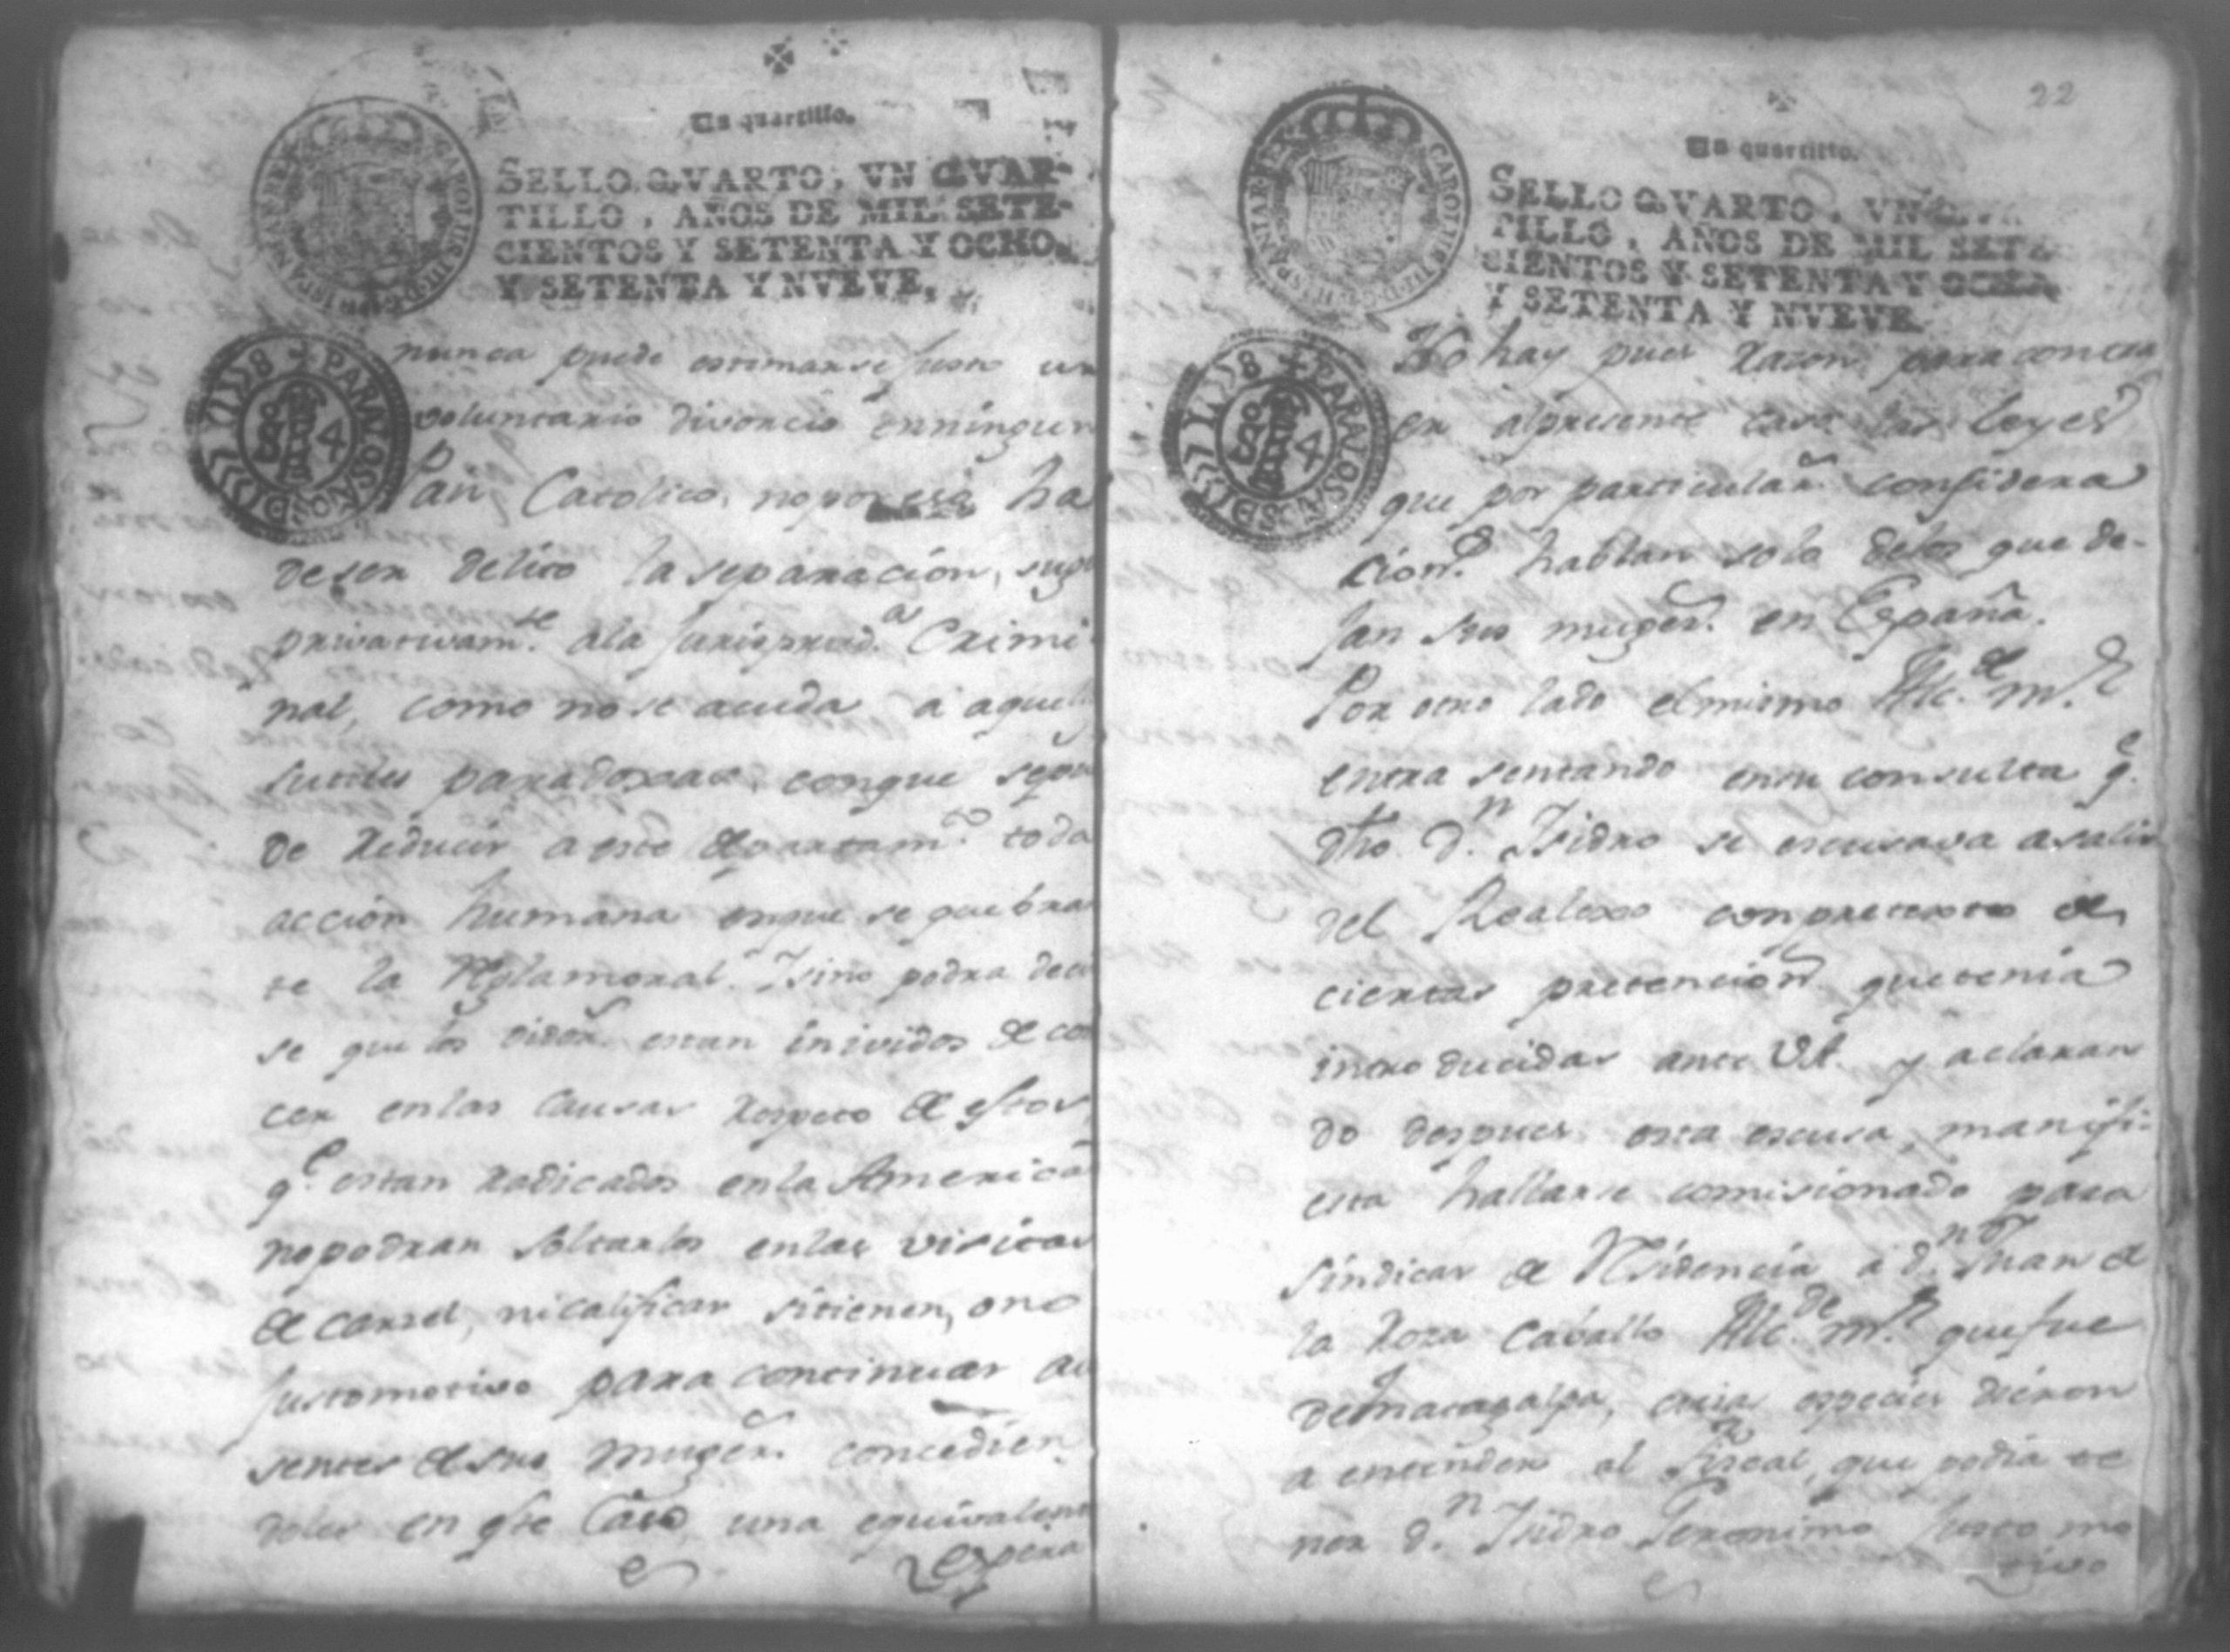 Un quartillo.
SELLO QVARTO, VN QVAR-
TILLO, AÑOS DE MIL SETE-
CIENTOS Y SETENTA Y OCHO,
Y SETENTA Y NVEVE.
nunca puede estimarse justo un
voluntario divorcio enningun
Pais Catolico, nopor esa ha
deser delito la separacion, suge
privativamte. ala Jurisprud.a Crimi
nal, como no se acuda a aquell
sutiles paradoxas, conque se pue
de reducir a este departam.to toda
accion humana enque se quebran
te la Reglamoral. Ysino podra decir
se que los oidors. estan inividos de co
cer enlas causas respeto de estos
q.e estan radicados enla America
nopodran soltarlos enlas visitas
de carzel, nicalificar sitienen, o no
justomotivo para continuar au
sentes desus mugers. concedien
doles en este caso una equivalente
espera
22
Un quartillo.
SELLO QVARTO, VN QVAR
TILLO, AÑOS DE MIL SETE
CIENTOS Y SETENTA Y OCHO,
Y SETENTA Y NVEVE.
No hay pues razon para contra
er alpresente caso las Leyes
que por particulars. considera
cions. hablan solo delos que de-
jan sus mugers. en España.
Por otro lado elmismo Alc.de m.r
entra sentando ensu consulta q.e
dho D.n Isidro se escusava asalir
del Realexo conpretexto de
ciertas pretencions. quetenia
introducidas ante VA. y aclaran
do despues esta escusa, manifi-
esta hallarse comisionado para
sindicar de Residencia a d.n Juan de
la Roza Caballo Alc.de m.r quefue
deMatagalpa, cuias especies dieron
a entender al Fiscal, que podia te
ner d.n Isidro Geronimo justo mo
tivo